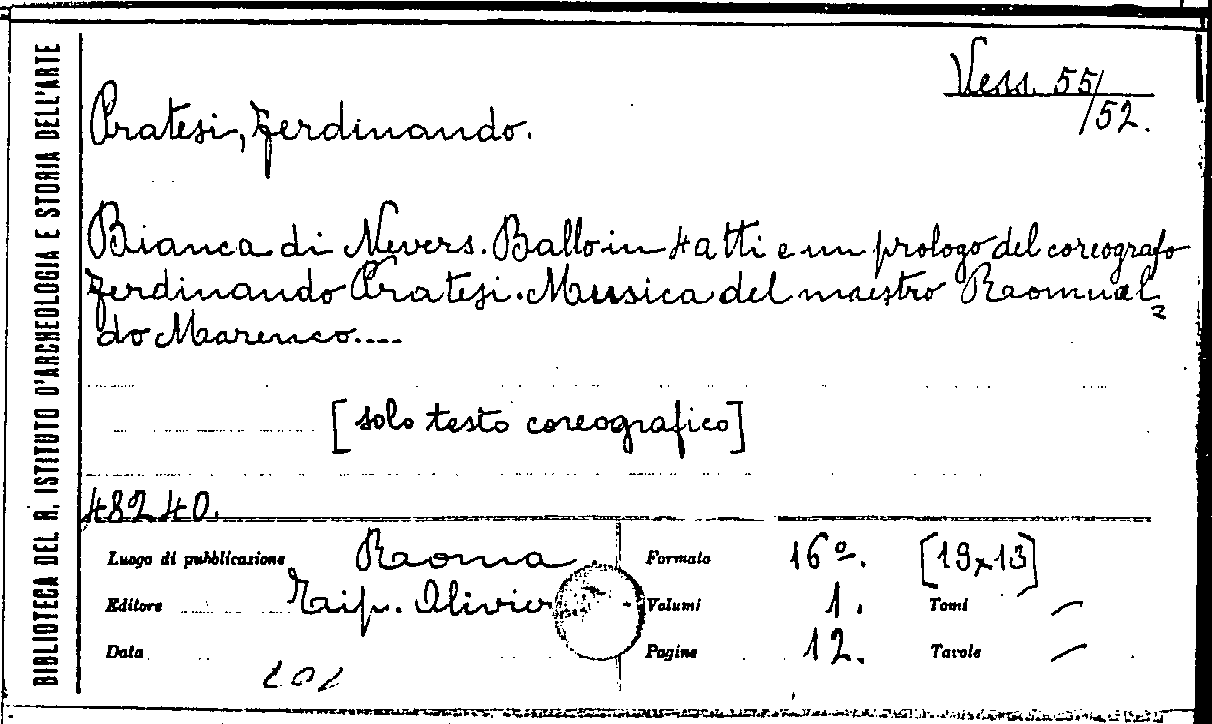 BIBLIOTECA DEL R. ISTITUTO D'ARCHEOLOGIA E STORIA DELL'ARTE
Vess. 55/52.
Pratesi, Ferdinando.
Bianca di Nevers. Ballo in 4 atti e un prologo del coreografo
Ferdinando Pratesi. Musica del maestro Romual
do Marenco....
[solo testo coreografico]
48240.
Luogo di pubblicazione Roma Formato 16º. [19x13]
Editore Tip. Olivieri Volumi 1. Tomi —
Data Pagine 12. Tavole —